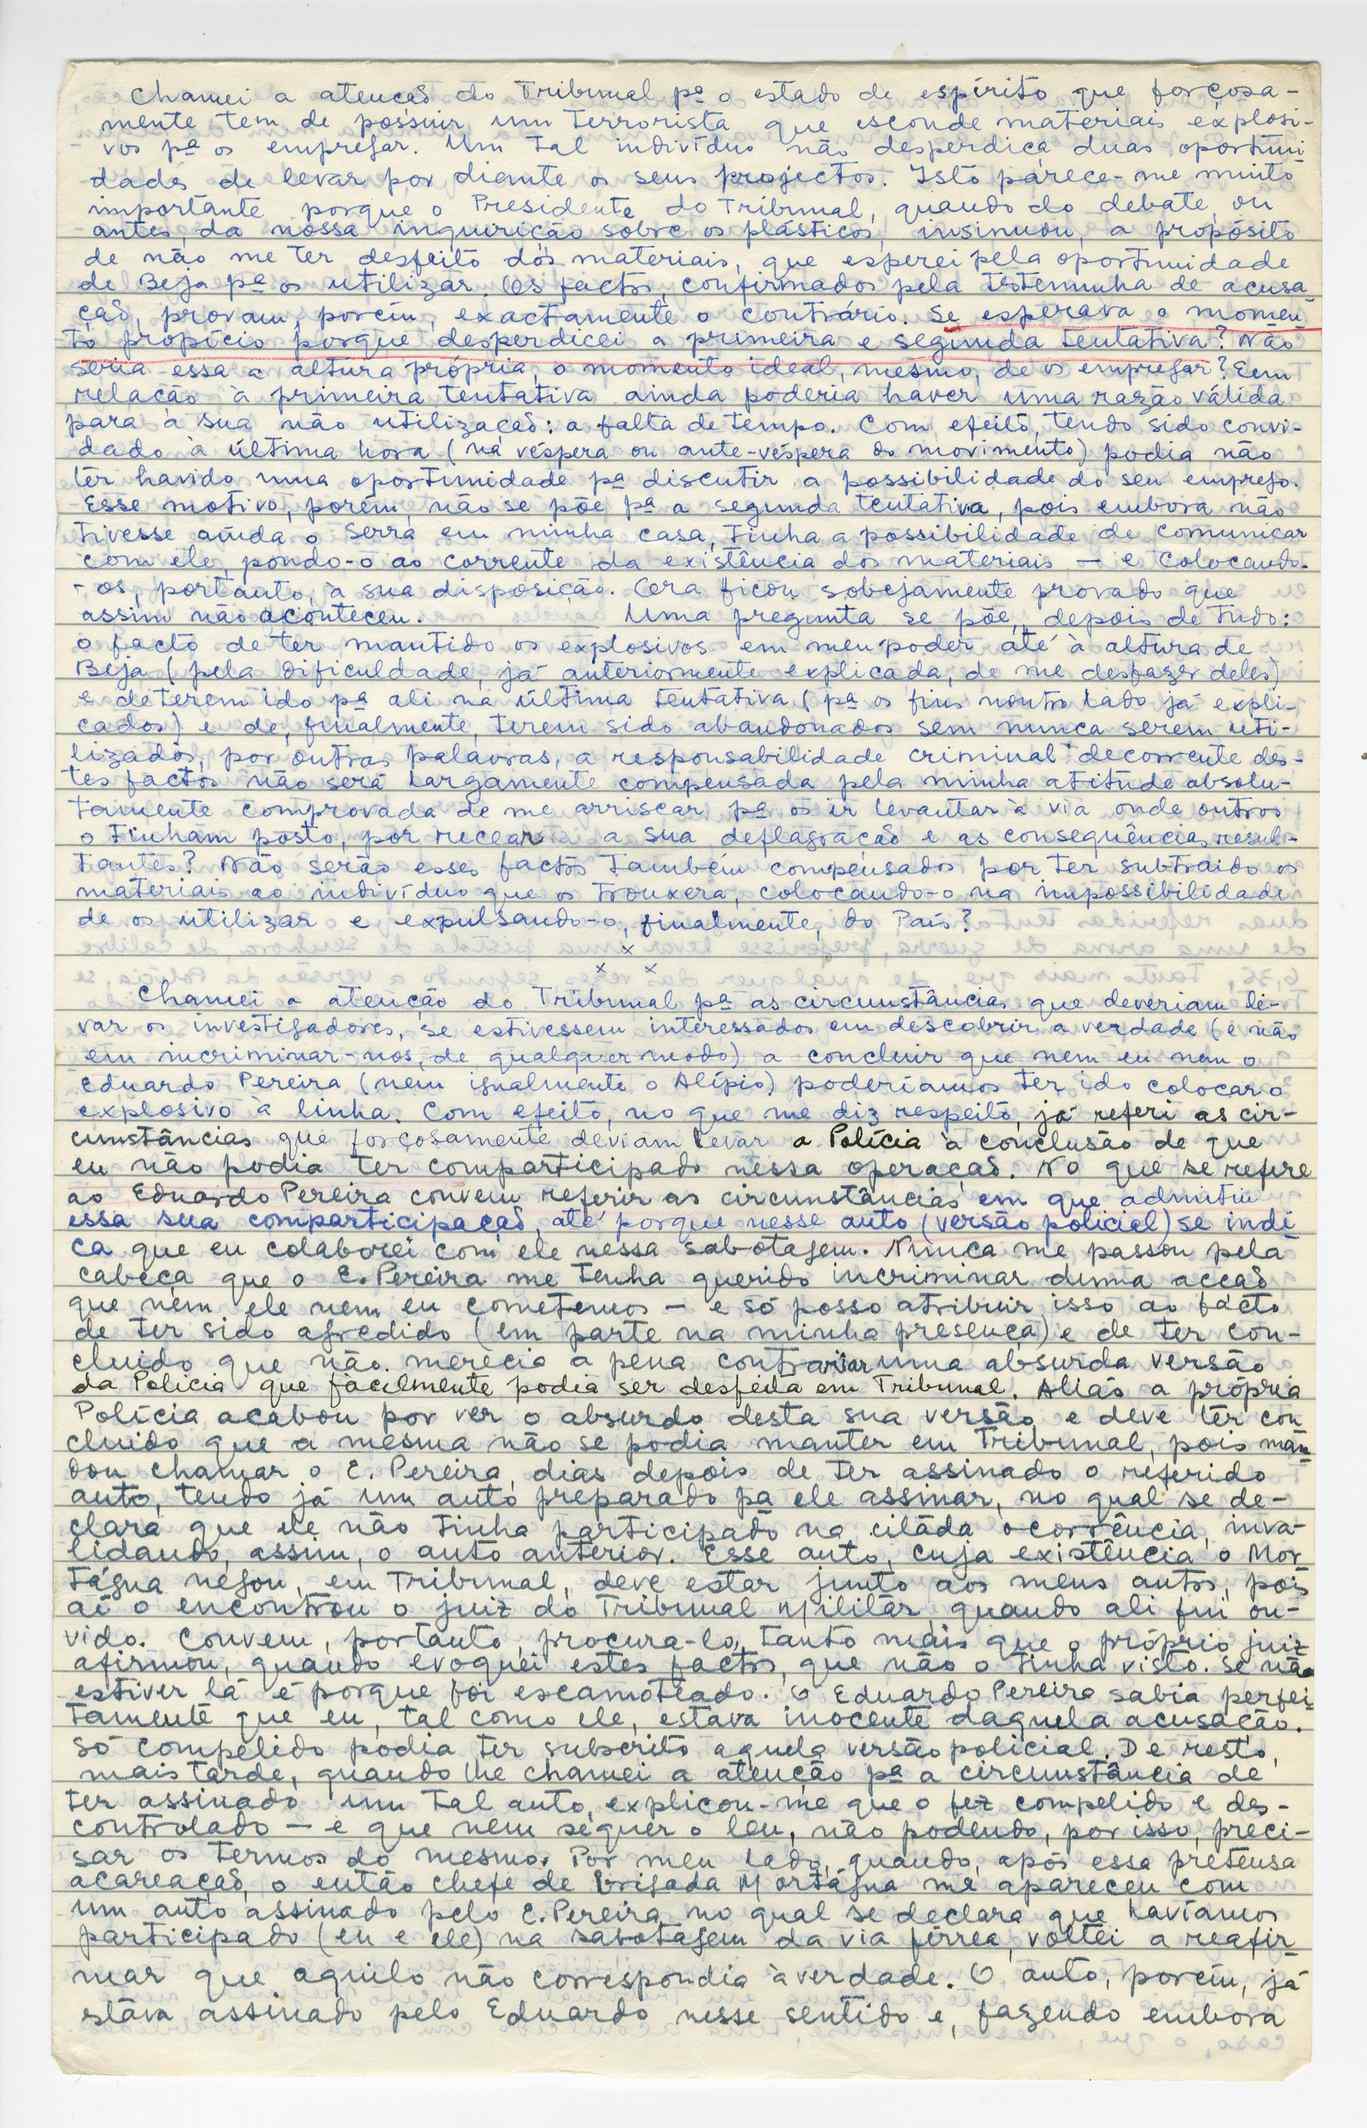 Chamei a atenção do Tribunal pª o estado de espírito que forçosa-
mente tem de possuir um terrorista que esconde materiais explosi-
vos pª os empregar. Um tal indivíduo não desperdiça duas oportuni
dades de levar por diante os seus projectos. Isto parece-me muito
importante porque o Presidente do Tribunal, quando do debate, ou
antes, da nossa inquirição sobre os plásticos, insinuou, a propósito
de não me ter desfeito dos materiais, que esperei pela oportunidade
de Beja pª os utilizar. Os factos, confirmados pela testemunha de acusa
ção, provam, porém, exactamente o contrário. Se esperava o momen
to propício porque desperdicei a primeira e segunda tentativa? Não
seria essa a altura própria, o momento ideal, mesmo, de os empregar? Em
relação à primeira tentativa ainda poderia haver uma razão válida
para a sua não utilização: a falta de tempo. Com efeito, tendo sido convi-
dado à última hora (na véspera ou ante-véspera do movimento) podia não
ter havido uma oportunidade pª discutir a possibilidade do seu emprego.
Esse motivo, porém, não se põe pª a segunda tentativa, pois embora não
tivesse ainda o Serra em minha casa, tinha a possibilidade de comunicar
com ele, pondo-o ao corrente da existência dos materiais — e colocando-
-os, portanto, à sua disposição. Ora ficou sobejamente provado que
assim não aconteceu. Uma pregunta se põe, depois de tudo:
o facto de ter mantido os explosivos em meu poder até à altura de
Beja (pela dificuldade, já anteriormente explicada, de me desfazer deles)
e de terem ido pª ali na última tentativa (pª os fins noutro lado já expli-
cados) e de, finalmente, terem sido abandonados sem nunca serem uti-
lizados, por outras palavras, a responsabilidade criminal decorrente des-
tes factos não será largamente compensada pela minha atitude absolu-
tamente comprovada de me arriscar pª os ir levantar à via onde outros
o tinham posto, por recear a sua deflagração e as consequências resul-
tantes? Não serão esses factos também compensados por ter subtraido os
materiais ao indivíduo que os trouxera, colocando-o na impossibilidade
de os utilizar e expulsando-o, finalmente, do País?
x
x x
Chamei a atenção do Tribunal pª as circunstâncias que deveriam le-
var os investigadores, se estivessem interessados em descobrir a verdade (e não
em incriminar-nos, de qualquer modo) a concluir que nem eu nem o
Eduardo Pereira (nem igualmente o Alípio) poderíamos ter ido colocar o
explosivo à linha. Com efeito, no que me diz respeito, já referi as cir-
cunstâncias que forçosamente deviam levar a Polícia à conclusão de que
eu não podia ter comparticipado nessa operação. No que se refere
ao Eduardo Pereira convem referir as circunstâncias em que admitiu
essa sua comparticipação, até porque nesse auto (versão policial) se indi
ca que eu colaborei com ele nessa sabotagem. Nunca me passou pela
cabeça que o E. Pereira me tenha querido incriminar duma acção
que nem ele nem eu cometemos — e só posso atribuir isso ao facto
de ter sido agredido (em parte na minha presença) e de ter con-
cluido que não merecia a pena contrariar uma absurda versão
da Polícia que fàcilmente podia ser desfeita em Tribunal. Aliás a própria
Polícia acabou por ver o absurdo desta sua versão e deve ter con
cluido que a mesma não se podia manter em Tribunal, pois man
dou chamar o E. Pereira, dias depois de ter assinado o referido
auto, tendo já um auto preparado pª ele assinar, no qual se de-
clara que ele não tinha participado na citada ocorrência, inva-
lidando, assim, o auto anterior. Esse auto, cuja existência o Mor
tágua negou, em Tribunal, deve estar junto aos meus autos, pois
aí o encontrou o juiz do Tribunal Militar, quando ali fui ou-
vido. Convem, portanto, procura-lo, tanto mais que o próprio juiz
afirmou, quando evoquei estes factos, que não o tinha visto. Se não
estiver lá é porque foi escamoteado. O Eduardo Pereira sabia perfei
tamente que eu, tal como ele, estava inocente daquela acusação.
Só compelido podia ter subscrito aquela versão policial. De resto,
mais tarde, quando lhe chamei a atenção pª a circunstância de
ter assinado um tal auto, explicou-me que o fez compelido e des-
controlado — e que nem sequer o leu, não podendo, por isso, preci-
sar os termos do mesmo. Por meu lado, quando, após essa pretensa
acareação, o então chefe de brigada Mortágua me apareceu com
um auto assinado pelo E. Pereira, no qual se declara que havíamos
participado (eu e ele) na sabotagem da via férrea, voltei a reafir
mar que aquilo não correspondia à verdade. O auto, porém, já
stava assinado pelo Eduardo nesse sentido e, fazendo embora